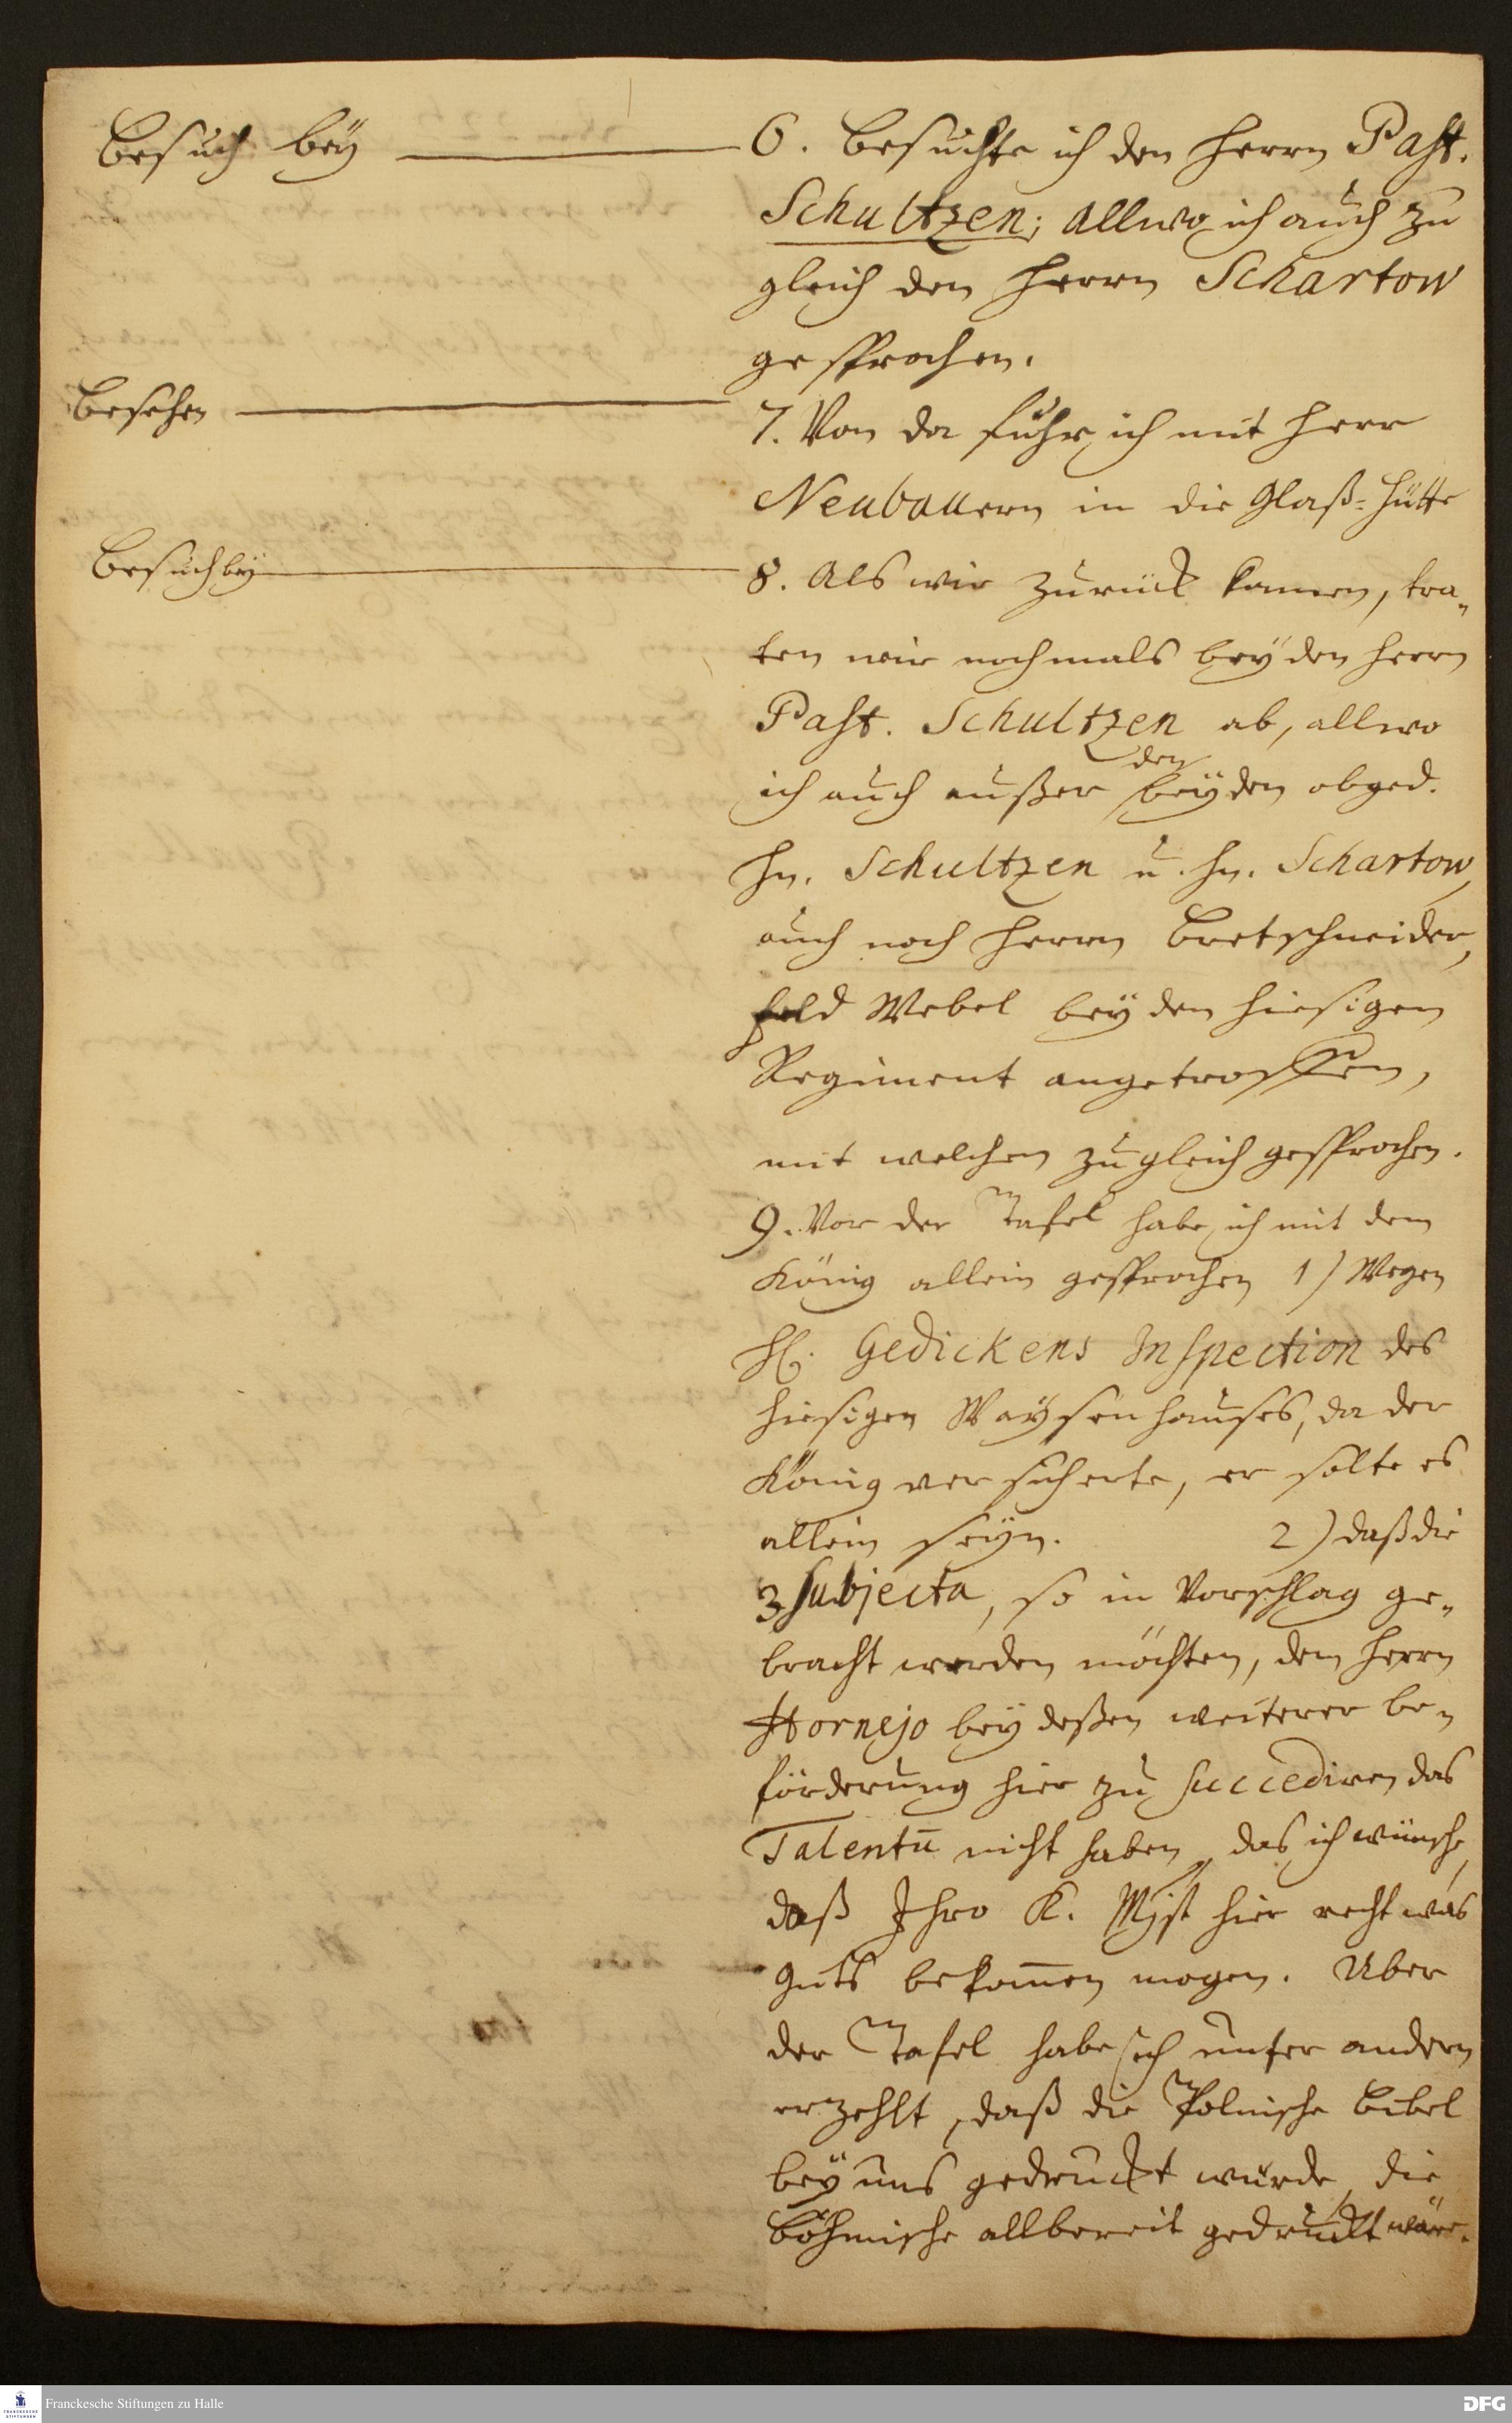 Besuch bey
6. Besuchte ich den Herrn Past.
Schultzen; allwo ich auch zu
gleich den Herrn Schartow
gesprochen.
Besehen
7. Von da fuhr ich mit Herr
Neubauern in die Glaß-Hütte
Besuch bey
8. Als wir zurück kamen, tra-
ten wir nochmals bey den Herrn
Past. Schultzen ab, allwo
ich auch außer den beyden obged.
Hn. Schultzen u. Hn. Schartow,
auch noch Herrn Bretschneider,
Feld Webel bey den hiesigen
Regiment angetroffen,
mit welchen zugleich gesprochen.
9. Vor der Tafel habe ich mit dem
König allein gesprochen 1) Wegen
H. Gedickens Inspection des
hiesigen Waysenhauses, da der
König versicherte, er solte es
allein seyn. 2) daß die
3 Subjecta, so in Vorschlag ge-
bracht werden möchten, dem Herrn
Hornejo bey deßen weiterer be-
förderung hier zu succediren das
Talentū nicht haben, das ich wünsche,
daß Ihro K. Mjst hier recht was
guts bekom̄en mogen. Uber
der Tafel habe ich unter andern
erzehlt, daß die Polnische Bibel
bey uns gedruckt würde, die
Böhmische allbereit gedruckt wäre.
Franckesche Stiftungen zu Halle
DFG